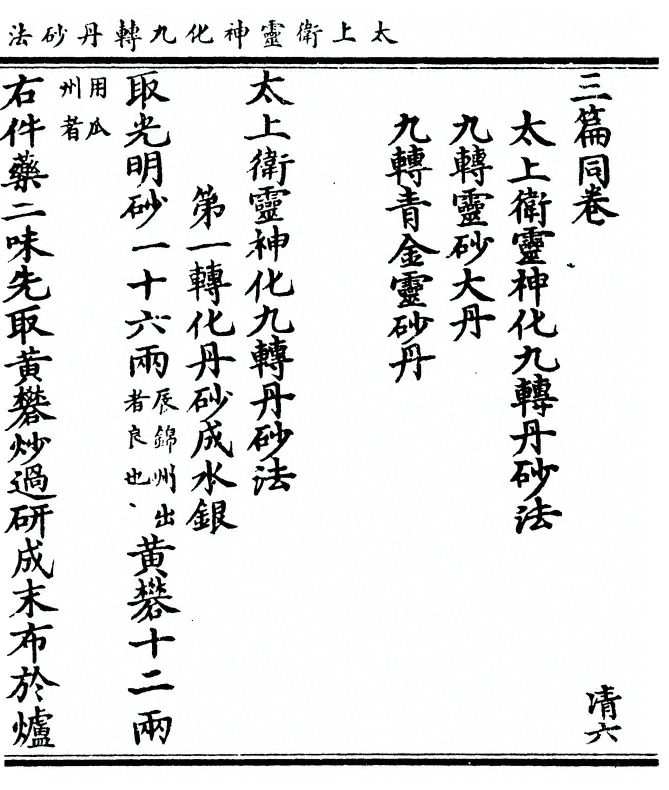 太上衛靈神化九轉丹砂法
三篇同卷
凊六
太上衛靈神化九轉丹砂法
九轉靈砂大丹
九轉青金靈砂丹
太上衛靈神化九轉丹砂法
第一轉化丹砂成水銀
取光明砂一十六兩辰錦州出者良也黃礬十二兩
用瓜州者
右件藥二味先取黃礬炒過研成末布於爐